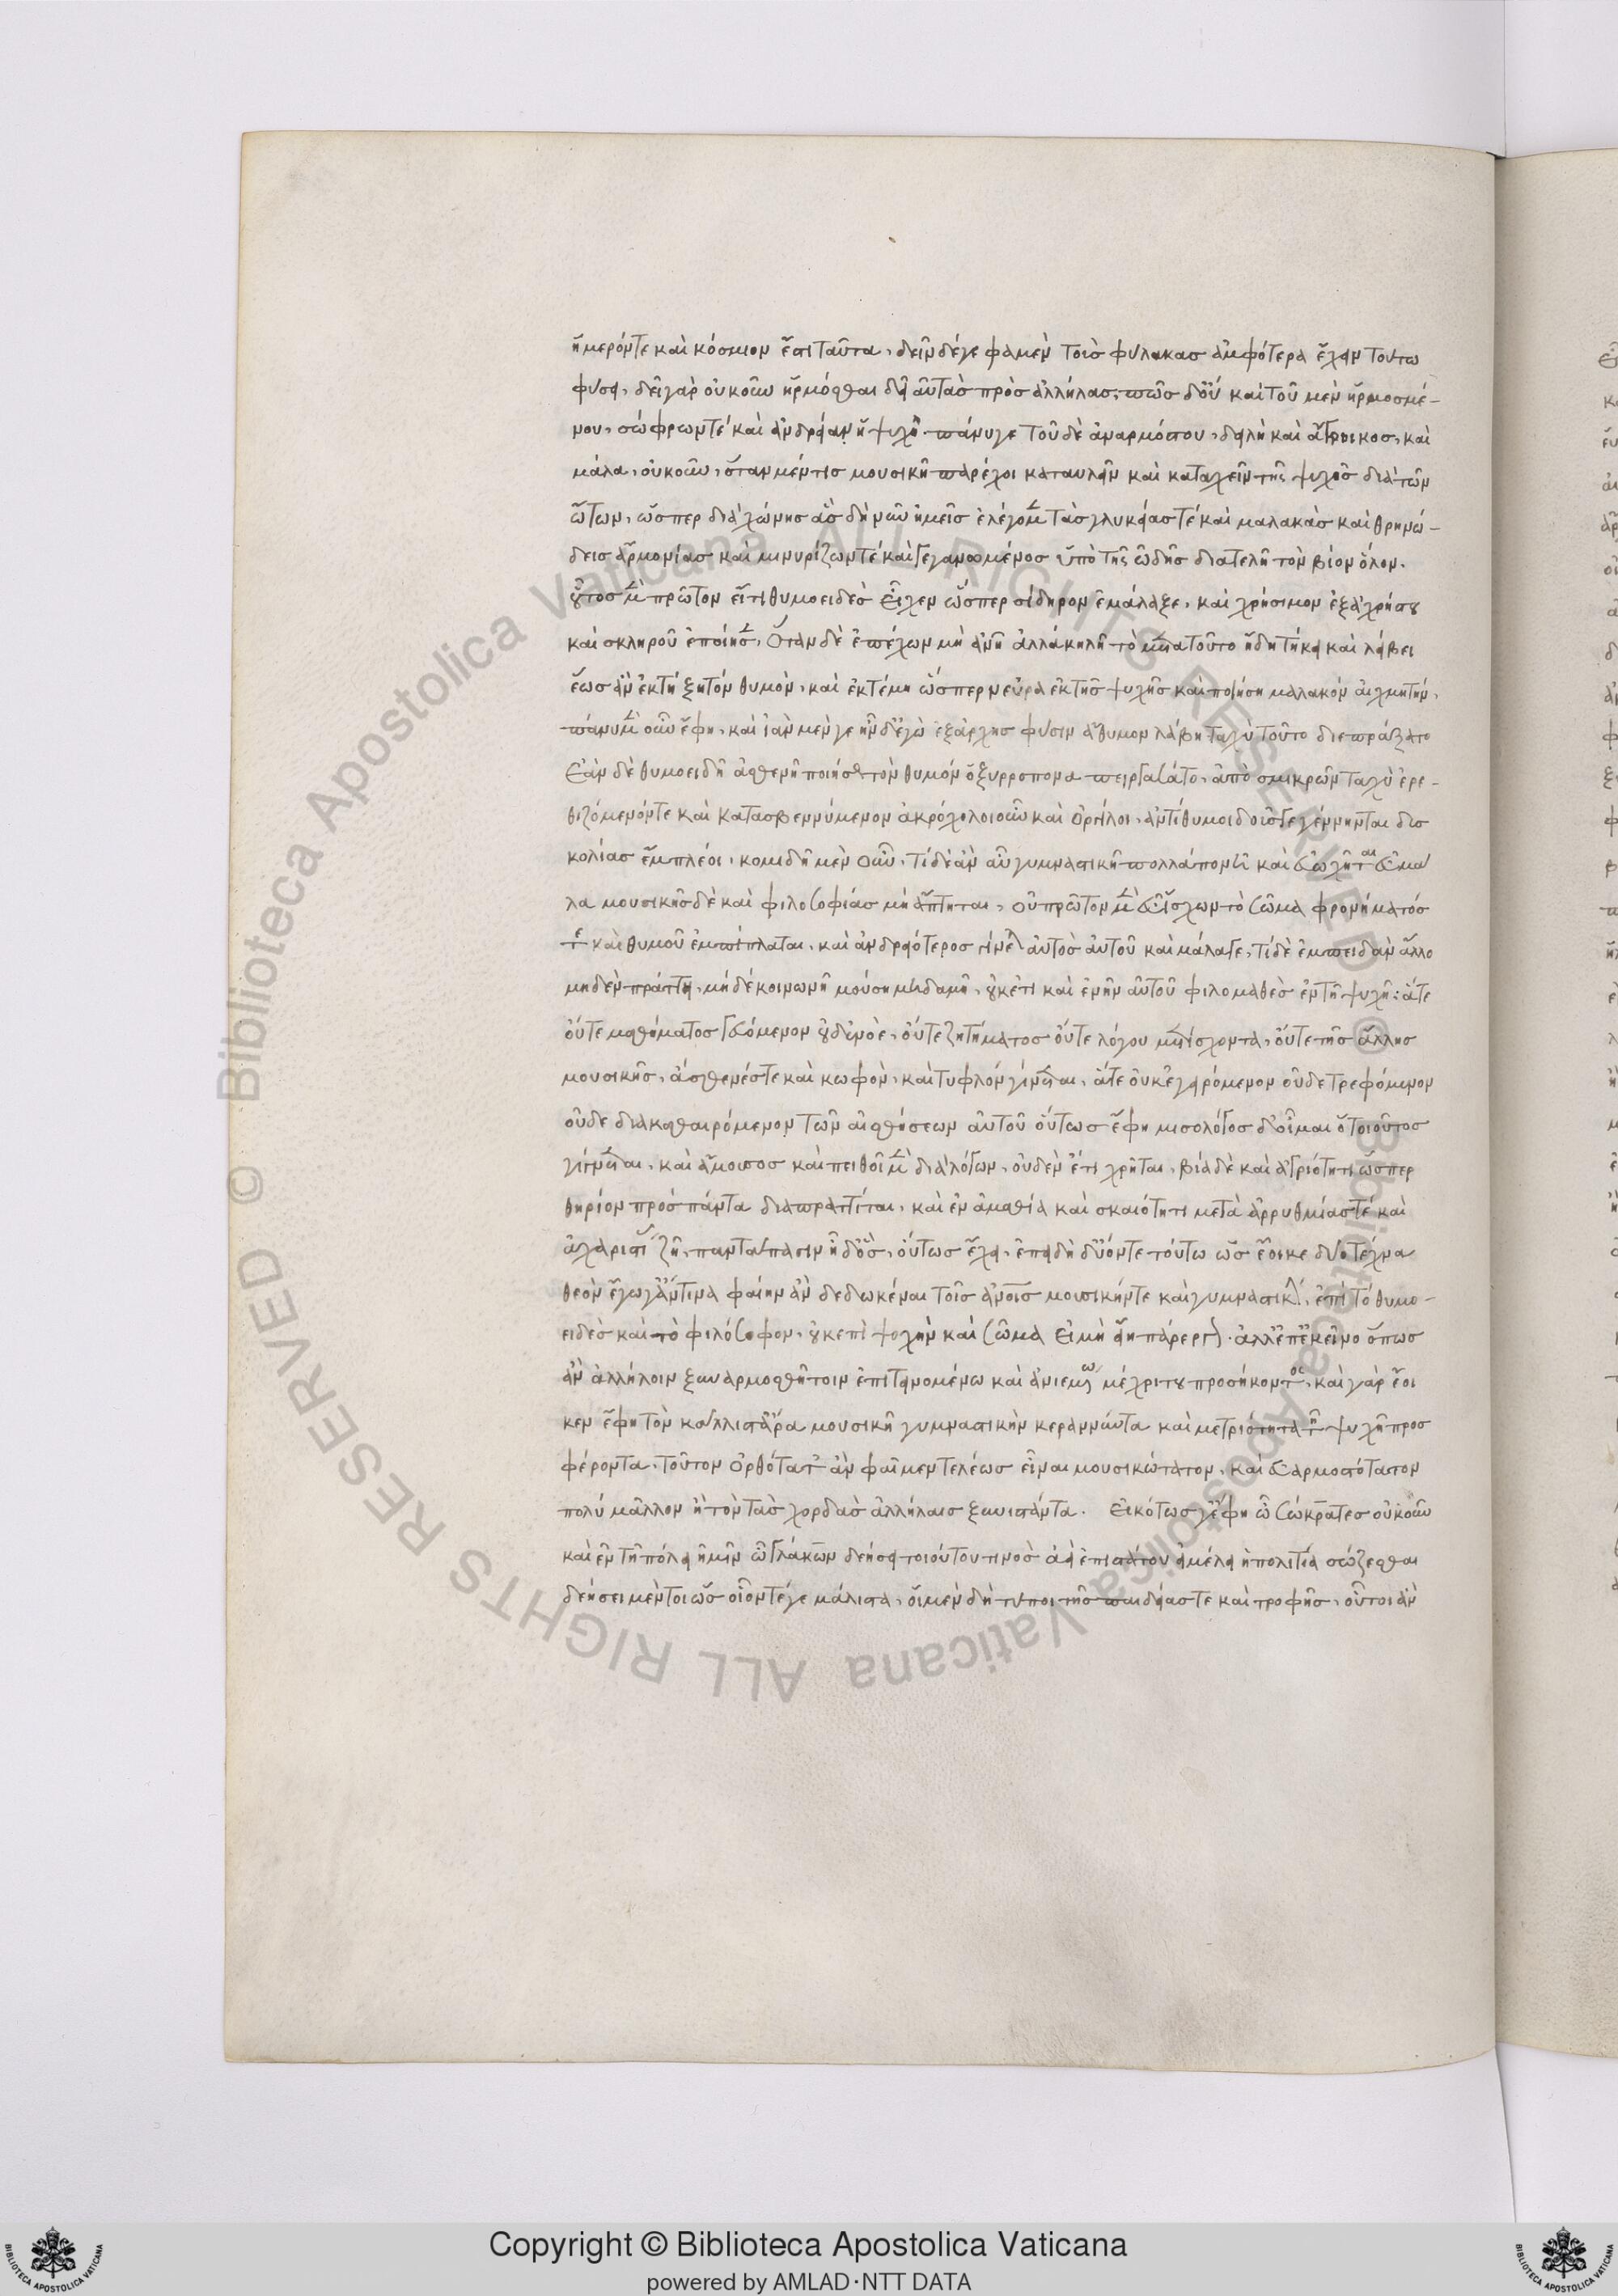 ἥμερόν τε καὶ κόσμιον ἔστι ταῦτα, δεῖν δέ γε φαμὲν τοὶσ φύλακασ ἀμφότερα ἔχειν τούτω
φύσει, δεῖ γὰρ οὐκοῦν ἡρμόσθαι δὴ αὐτὰσ πρὸσ ἀλλήλασ, πῶσ δ' οὔ καὶ τοῦ μὲν ἡρμοσμέ-
νου, σώφρων τέ καὶ ἀνδρεία ἡ ψυχῆ. πάνυ γε τοῦ δὲ ἀναρμόστου, δειλὴ καὶ ἄγροικοσ, καὶ
μάλα, οὐκοῦν, ὅταν μέν τισ μουσικῆ παρέχοι καταυλεῖν καὶ καταχεῖν τῆς ψυχῆσ διὰ τῶν
ὤτων, ὥσπερ διὰ χώνησ ἃσ δὴ νῦν ἡμεῖσ ἐλέγομεν τὰσ γλυκείασ τέ καὶ μαλακὰσ καὶ θρηνώ-
δεισ ἁρμονίασ καὶ μινυρίζων τέ καὶ γεγανωμένοσ ὑπὸ τῆς ὠδῆσ διατελῆ τὸν βίον ὅλον.
οὗτοσ μὲν πρῶτον εἴ τι θυμοειδὲσ εἶχεν ὥσπερ σίδηρον ἐμάλαξε, καὶ χρήσιμον ἐξ ἀχρήστου
καὶ σκληροῦ ἐποίησεν, ὅταν δὲ ἐπέχων μὴ ἀνῆ ἀλλὰ κηλῆ τὸ μετὰ τοῦτο ἤδη τήκει καὶ λείβει
ἕωσ ἂν ἐκτήξη τὸν θυμὸν, καὶ ἐκτέμη ὥσπερ νεῦρα ἐκ τῆσ ψυχῆσ καὶ ποιήση μαλακὸν αἰχμητήν.
πάνυ μὲν οὖν ἔφη, καὶ ἐὰν μέν γε ἦν δ' ἐγὼ ἐξ ἀρχῆσ φύσιν ἄθυμον λάβη, ταχὺ τοῦτο διεπράξατο
Ἐὰν δὲ θυμοειδῆ ἀσθενῆ ποιήσασ τὸν θυμόν ὀξύρροπον ἀπειργάσατο, ἀπὸ σμικρῶν ταχὺ ἐρε-
θιζόμενόν τε καὶ κατασβεννύμενον ἀκρόχολοι οὖν καὶ ὀργίλοι, ἀντὶ θυμοιδοῖσ γεγένηνται δυσ
κολίασ ἔμπλεοι, κομιδῆ μὲν οὖν, τί δὲ ἂν αὖ γυμναστικῆ πολλὰ πονῆ καὶ εὐωχῆται εὖ μά
λα μουσικῆσ δὲ καὶ φιλοσοφίασ μὴ ἅπτηται, οὐ πρῶτον μὲν εὖ ἴσχων τὸ σῶμα φρονήματόσ
τε καὶ θυμοῦ ἐμπίπλαται, καὶ ἀνδρειότεροσ γίνεται αὐτὸσ αὑτοῦ καὶ μάλα γε, τί δὲ ἐμπειδὰν ἄλλο
μηδὲν πράττη, μὴ δὲ κοινωνῆ μούση μηδαμῆ, οὐκέτι καὶ ἐνῆν αὐτοῦ φιλομαθὲσ ἐν τῆ ψυχῆ: ἅτε
οὔτε μαθήματοσ γευόμενον οὐδενὸσ, οὔτε ζητήματοσ οὔτε λόγου μετίσχοντα, οὔτε τῆσ ἄλλησ
μουσικῆσ, ἀσθενέσ τε καὶ κωφὸν, καὶ τυφλὸν γίνεται, ἅτε οὐκ ἐγειρόμενον οὐδε τρεφόμενον
οὐδε διακαθαιρόμενον τῶν αἰσθήσεων αὐτοῦ οὕτωσ ἔφη μισολόγοσ δ' οἶμαι ὁ τοιοῦτοσ
γίγνεται, καὶ ἄμουσοσ καὶ πειθοῖ μὲν διὰ λόγων, οὐδὲν ἔτι χρῆται, βία δὲ καὶ ἀγριότητι ὥσπερ
θηρίον πρὸσ πάντα διαπράττεται, καὶ ἐν ἀμαθία καὶ σκαιότητι μετὰ ἀρρυθμίασ τέ καὶ
ἀχαριστίασ ζῆ, πανταπασιν ἦ δ' ὃσ, οὕτωσ ἔχει, ἐπειδὴ δύ' ὄντε τούτω ὡσ ἔοικε δύο τέχνα
θεὸν ἔγωγ' ἄν τινα φαίην ἂν δεδωκέναι τοῖσ ἀνοισ μουσικήν τε καὶ γυμναστικὴν, ἐπὶ τὸ θυμο-
ειδὲσ καὶ τὸ φιλόσοφον, οὐκ ἐπὶ ψυχὴν καὶ σῶμα εἰ μὴ εἴη πάρεργον. ἀλλ' ἐπ' ἐκεῖνο ὅπωσ
ἂν ἀλλήλοιν ξυναρμοσθῆτοιν ἐπιτεινομένω καὶ ἀνιεμένω μέχρι του προσήκοντος, καὶ γὰρ ἔοι
κεν ἔφη τὸν κάλλιστ' ἄρα μουσικῆ γυμναστικὴν κεραννύντα καὶ μετριότητα τῆ ψυχῆ προσ
φέροντα, τοῦτον ὀρθότατ' ἂν φαῖμεν τελέωσ εἶναι μουσικώτατον, καὶ εὐαρμοστότατον
πολὺ μᾶλλον ἢ τὸν τὰσ χορδὰσ ἀλλήλαισ ξυνιστάντα. Εἰκότωσ γ' ἔφη ὦ σώκρατεσ οὐκοῦν
καὶ ἐν τῆ πόλει ἡμῖν ὦ γλάκων δεήσει τοιούτου τινοσ ἀεὶ ἐπιστάτου εἰ μέλει ἡ πολιτεία σώζεσθαι
δεήσει μέντοι ὡσ οἷον τέ γε μάλιστα, οἱ μὲν δὴ τύποι τῆσ παιδείασ τε καὶ τροφῆσ, οὗτοι ἂν
Copyright © Biblioteca Apostolica Vaticana
powered by AMLAD·NTT DATA